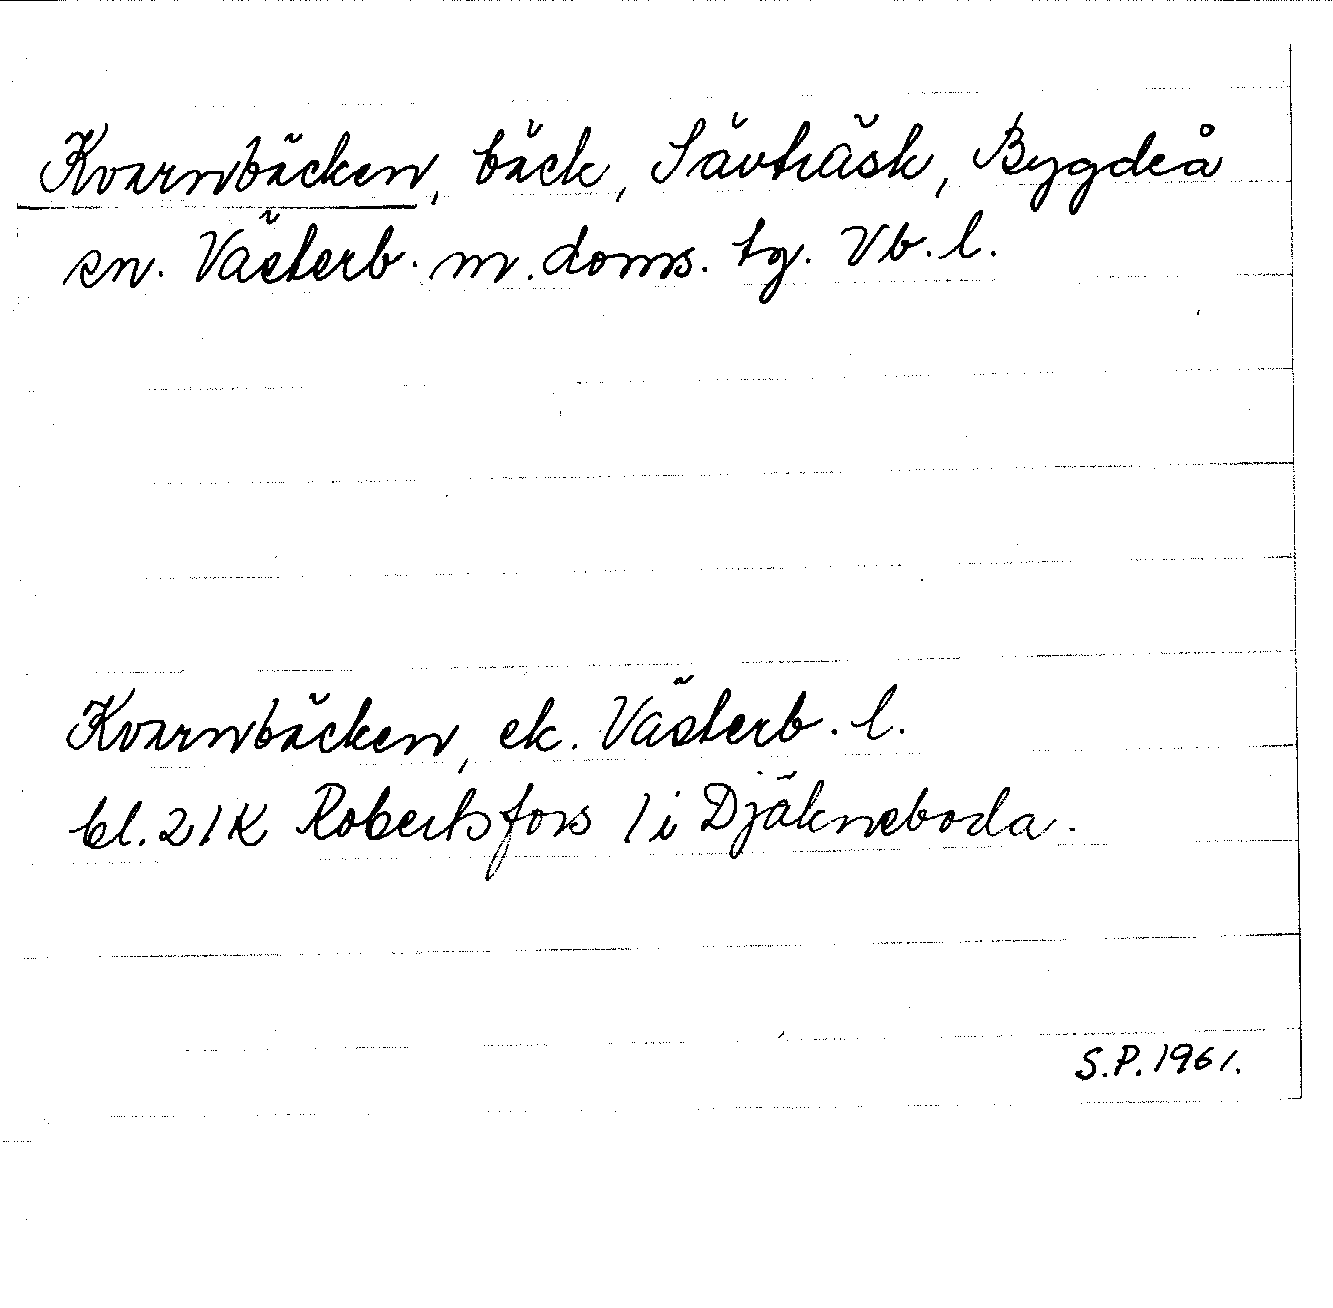 Kvarnbäcken, bäck, Sävträsk, Bygdeå
sn. Västerb. m. doms. tg. Vb. l.
Kvarnbäcken, ek. Västerb. l.
bl. 21K Robertsfors / i Djäkneboda.
S.P. 1961.